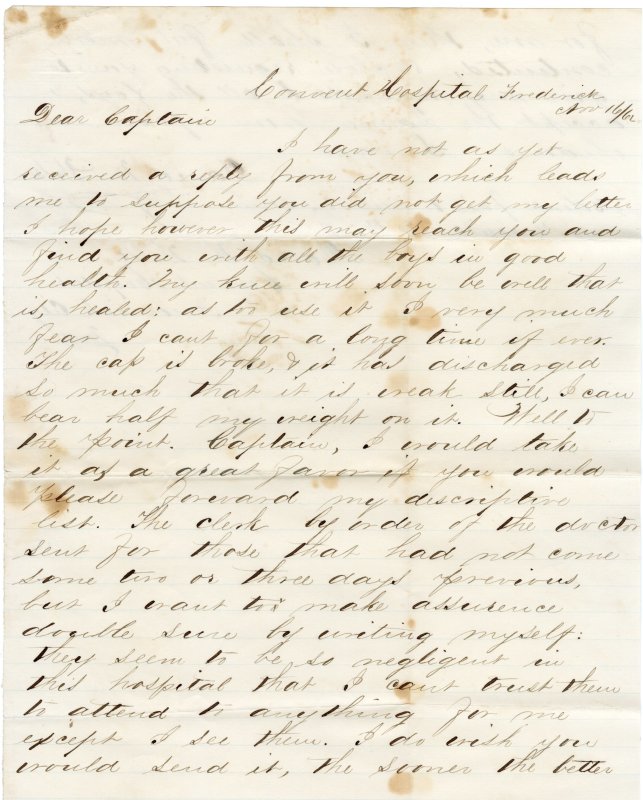 Convent Hospital Frederick
Nov 16/62
Dear Captain
I have not as yet
received a reply from you, which leads
me to suppose you did not get my letter
I hope however this may reach you and
find you with all the boys in good
health. My knee will soon be well that
is, healed: as to use it I very much
fear I cant for a long time if ever.
The cap is broke, & it has discharged
so much that it is weak still, I can
bear half my weight on it. Well to
the point. Captain, I would take
it as a great favor if you would
please forward my descriptive
list. The clerk by order of the doctor
sent for those that had not come
some two or three days previous,
but I want to make assurence
double sure by writing myself:
they seem to be so negligent in
this hospital that I cant trust them
to attend to anything for me
except I see them. I do wish you
would send it, the sooner the better